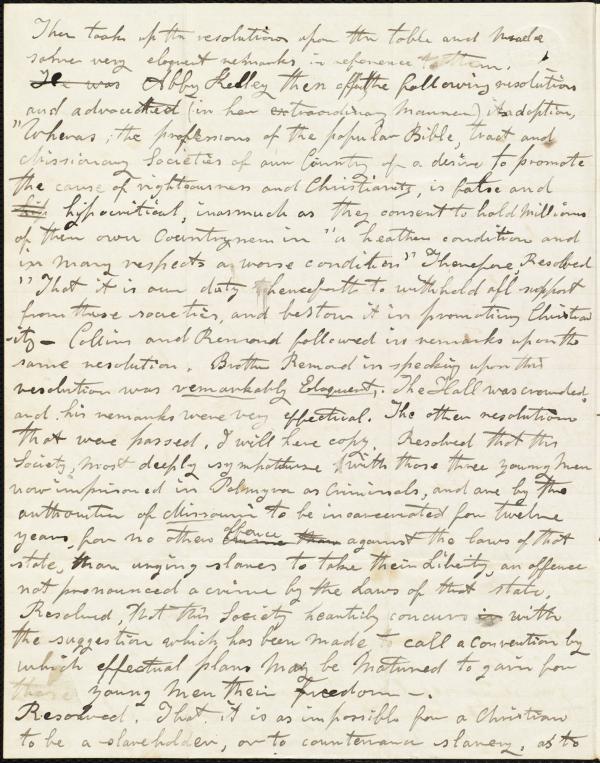 Then took up the resolutions upon the table and made
some very eloquent remarks in reference to them.
He was Abby Kelley then offd the following resolution
and advocated (in her extraordinary manner) its adoption,
"Whereas, the professions of the popular Bible, tract and
Missionary Societies of our Country of a desire to promote
the cause of righteousness and Christianity, is false and
hip hypocritical, inasmuch as they consent to hold Millions
of their own Countrymen in "a heathen condition and
in many respects a worse condition" Therefore, Resolved
"That it is our duty henceforth to withhold all support
from these societies, and bestow it in promoting Christian
ity – Collins and Remond followed in remarks upon the
same resolution. Brother Remond in speaking upon this
resolution was remarkably Eloquent, The Hall was crowded,
and his remarks were very effectual. The other resolutions
that were passed, I will here copy. Resolved that this
Society, most deeply sympathise with those three young men
now imprisoned in Palmyra as Criminals, and are by the
authorities of Missouri to be incarcerated for twelve
years, for no other offence than against the laws of that
state, than urging slaves to take their Liberty, an offence
not pronounced a crime by the Laws of that state.
Resolved, that this Society heartily concurs in with
the suggestion which has been made to call a convention by
which effectual plans may be matured to gain for
these young men their Freedom –.
Resolved. That it is as impossible for a Christian
to be a slaveholder, or to countenance slavery, as to